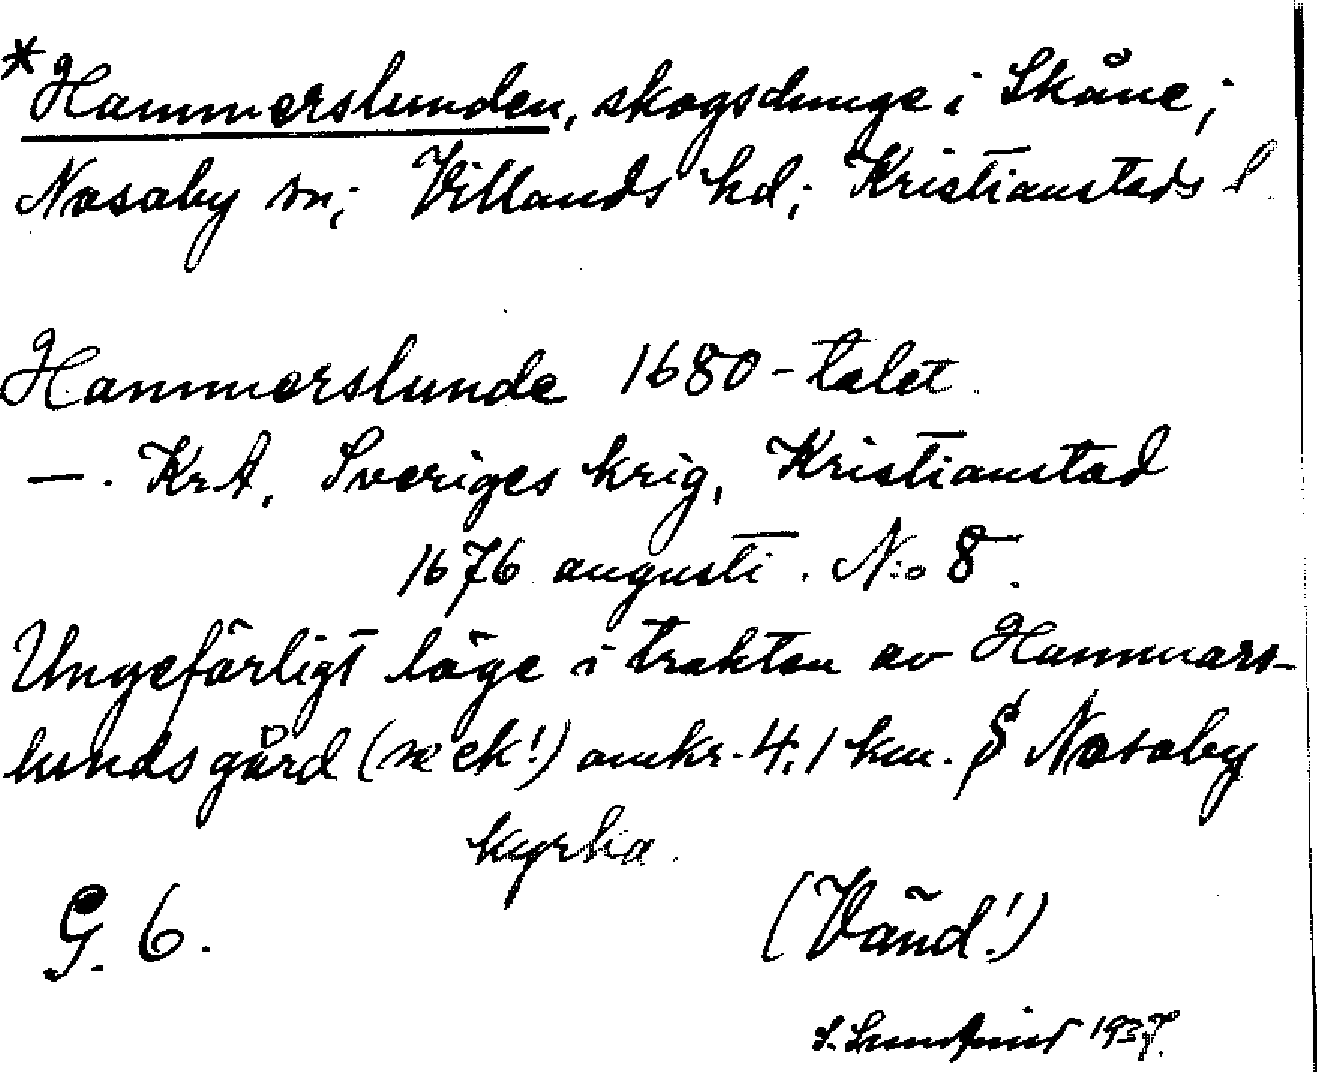 *Hammerslunden, skogsdunge i Skåne;
Nosaby sn; Villands hd; Kristianstads l.
Hammerslunde 1680-talet.
—. KrA, Sveriges krig, Kristianstad
1676 augusti. N:o 8.
Ungefärligt läge i trakten av Hammars-
lunds gård (se ek!) omkr. 4,1 km. S Nosaby
kyrka.
G. 6.
(Vänd!)
1937.